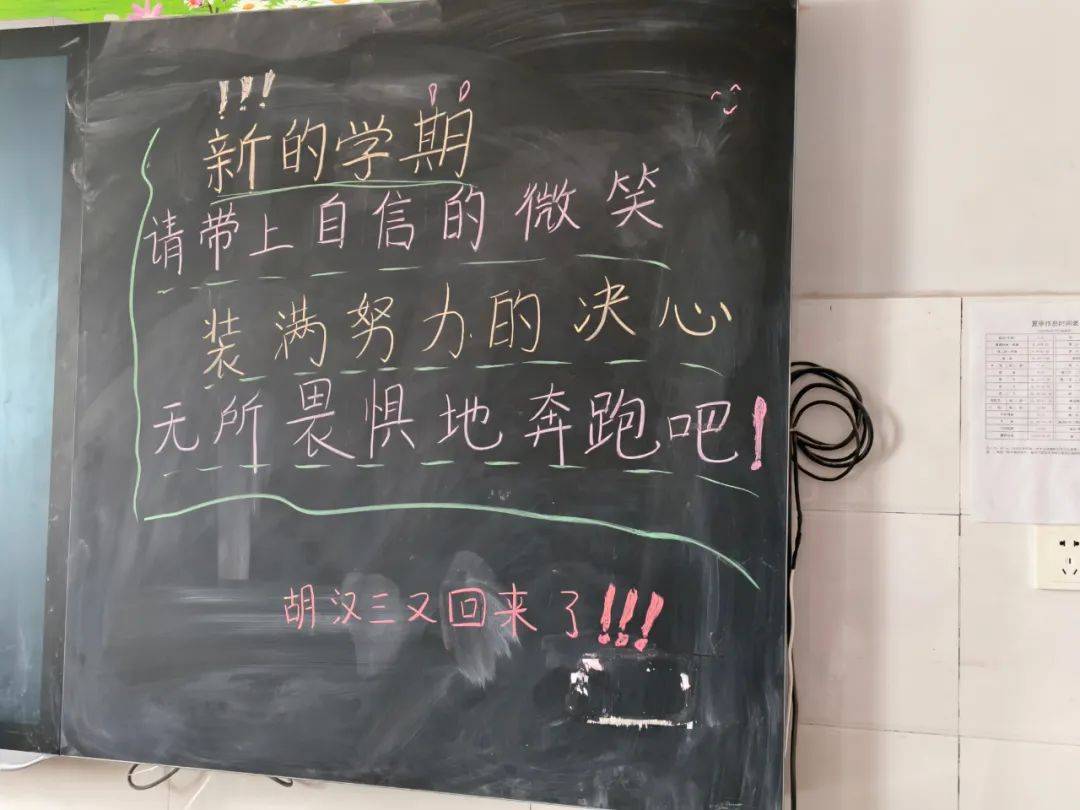 !!!
新的学期
请带上自信的微笑
装满努力的决心
无所畏惧地奔跑吧!
胡汉三又回来了!!!